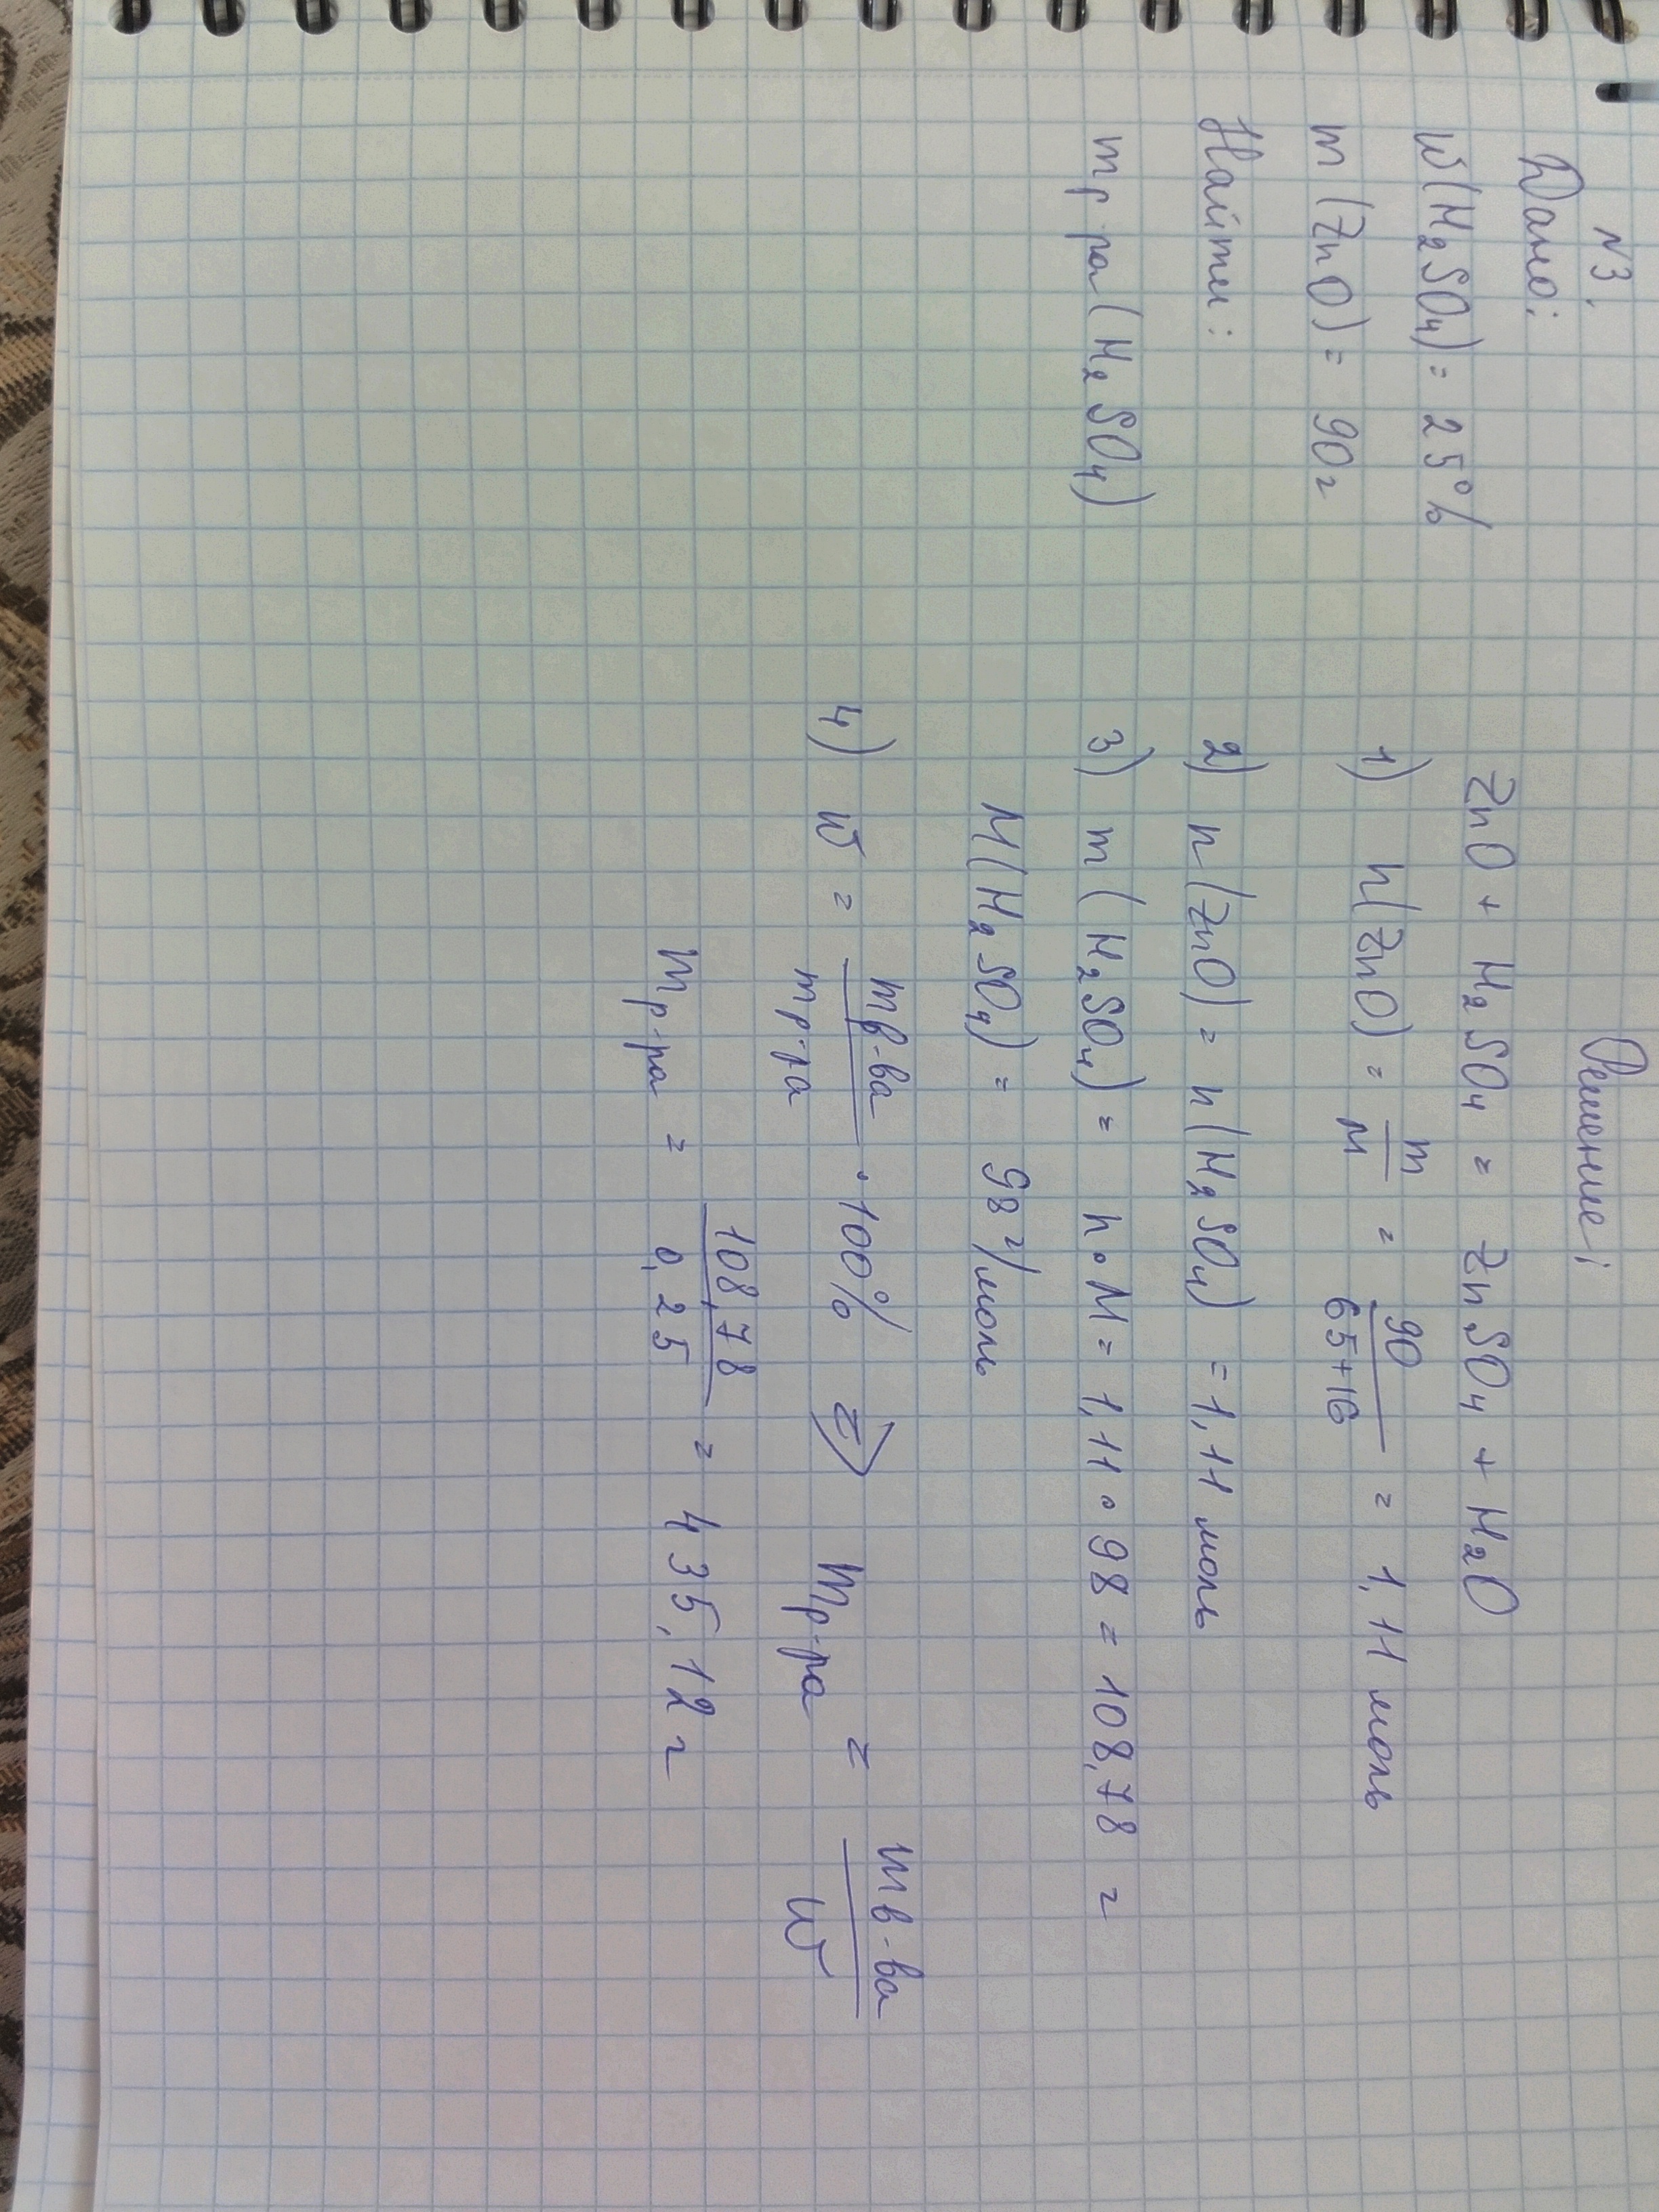 №3.
Дано:
W(H₂SO₄) = 25%
m(ZnO) = 90г
Найти:
mр-ра(H₂SO₄)
Решение:
ZnO + H₂SO₄ = ZnSO₄ + H₂O
1) n(ZnO) = m/M = 90/65+16 = 1,11 моль
2) n(ZnO) = n(H₂SO₄) = 1,11 моль
3) m(H₂SO₄) = n·M = 1,11·98 = 108,78 г
M(H₂SO₄) = 98 г/моль
4) W = mв-ва/mр-ра · 100% => mр-ра = mв-ва/W
mр-ра = 108,78/0,25 = 435,12 г